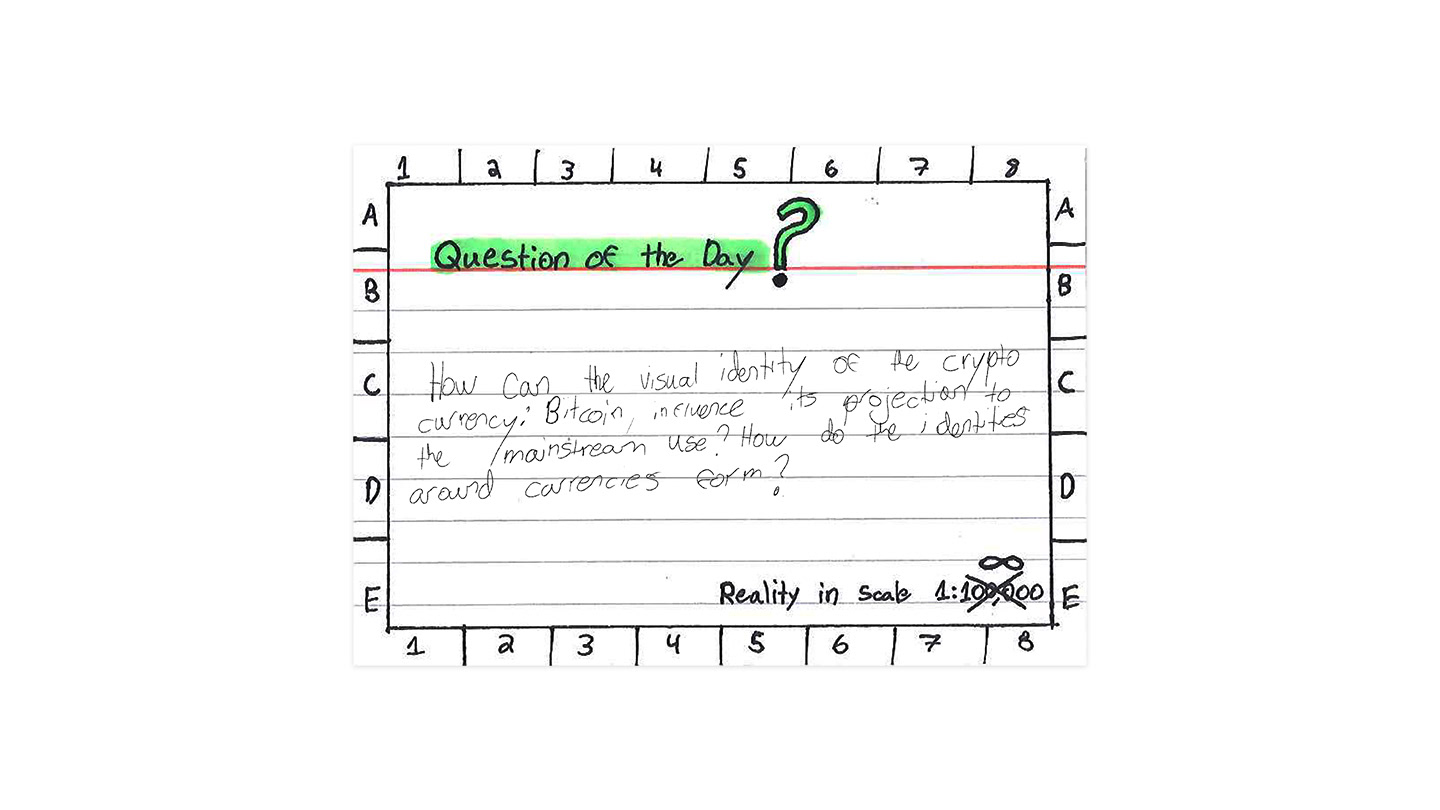 1 2 3 4 5 6 7 8
A A
Question of the Day ?
B B
How can the visual identity of the crypto
C C
currency: Bitcoin, influence its projection to
the mainstream use? How do the identities
around currencies form?
D D
∞
Reality in Scale 1:100,000
E E
1 2 3 4 5 6 7 8